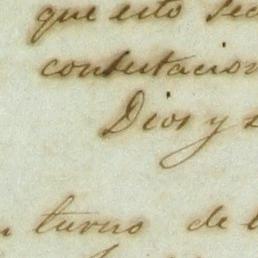 que esto sea
contestacion
Dios y s
turno de l